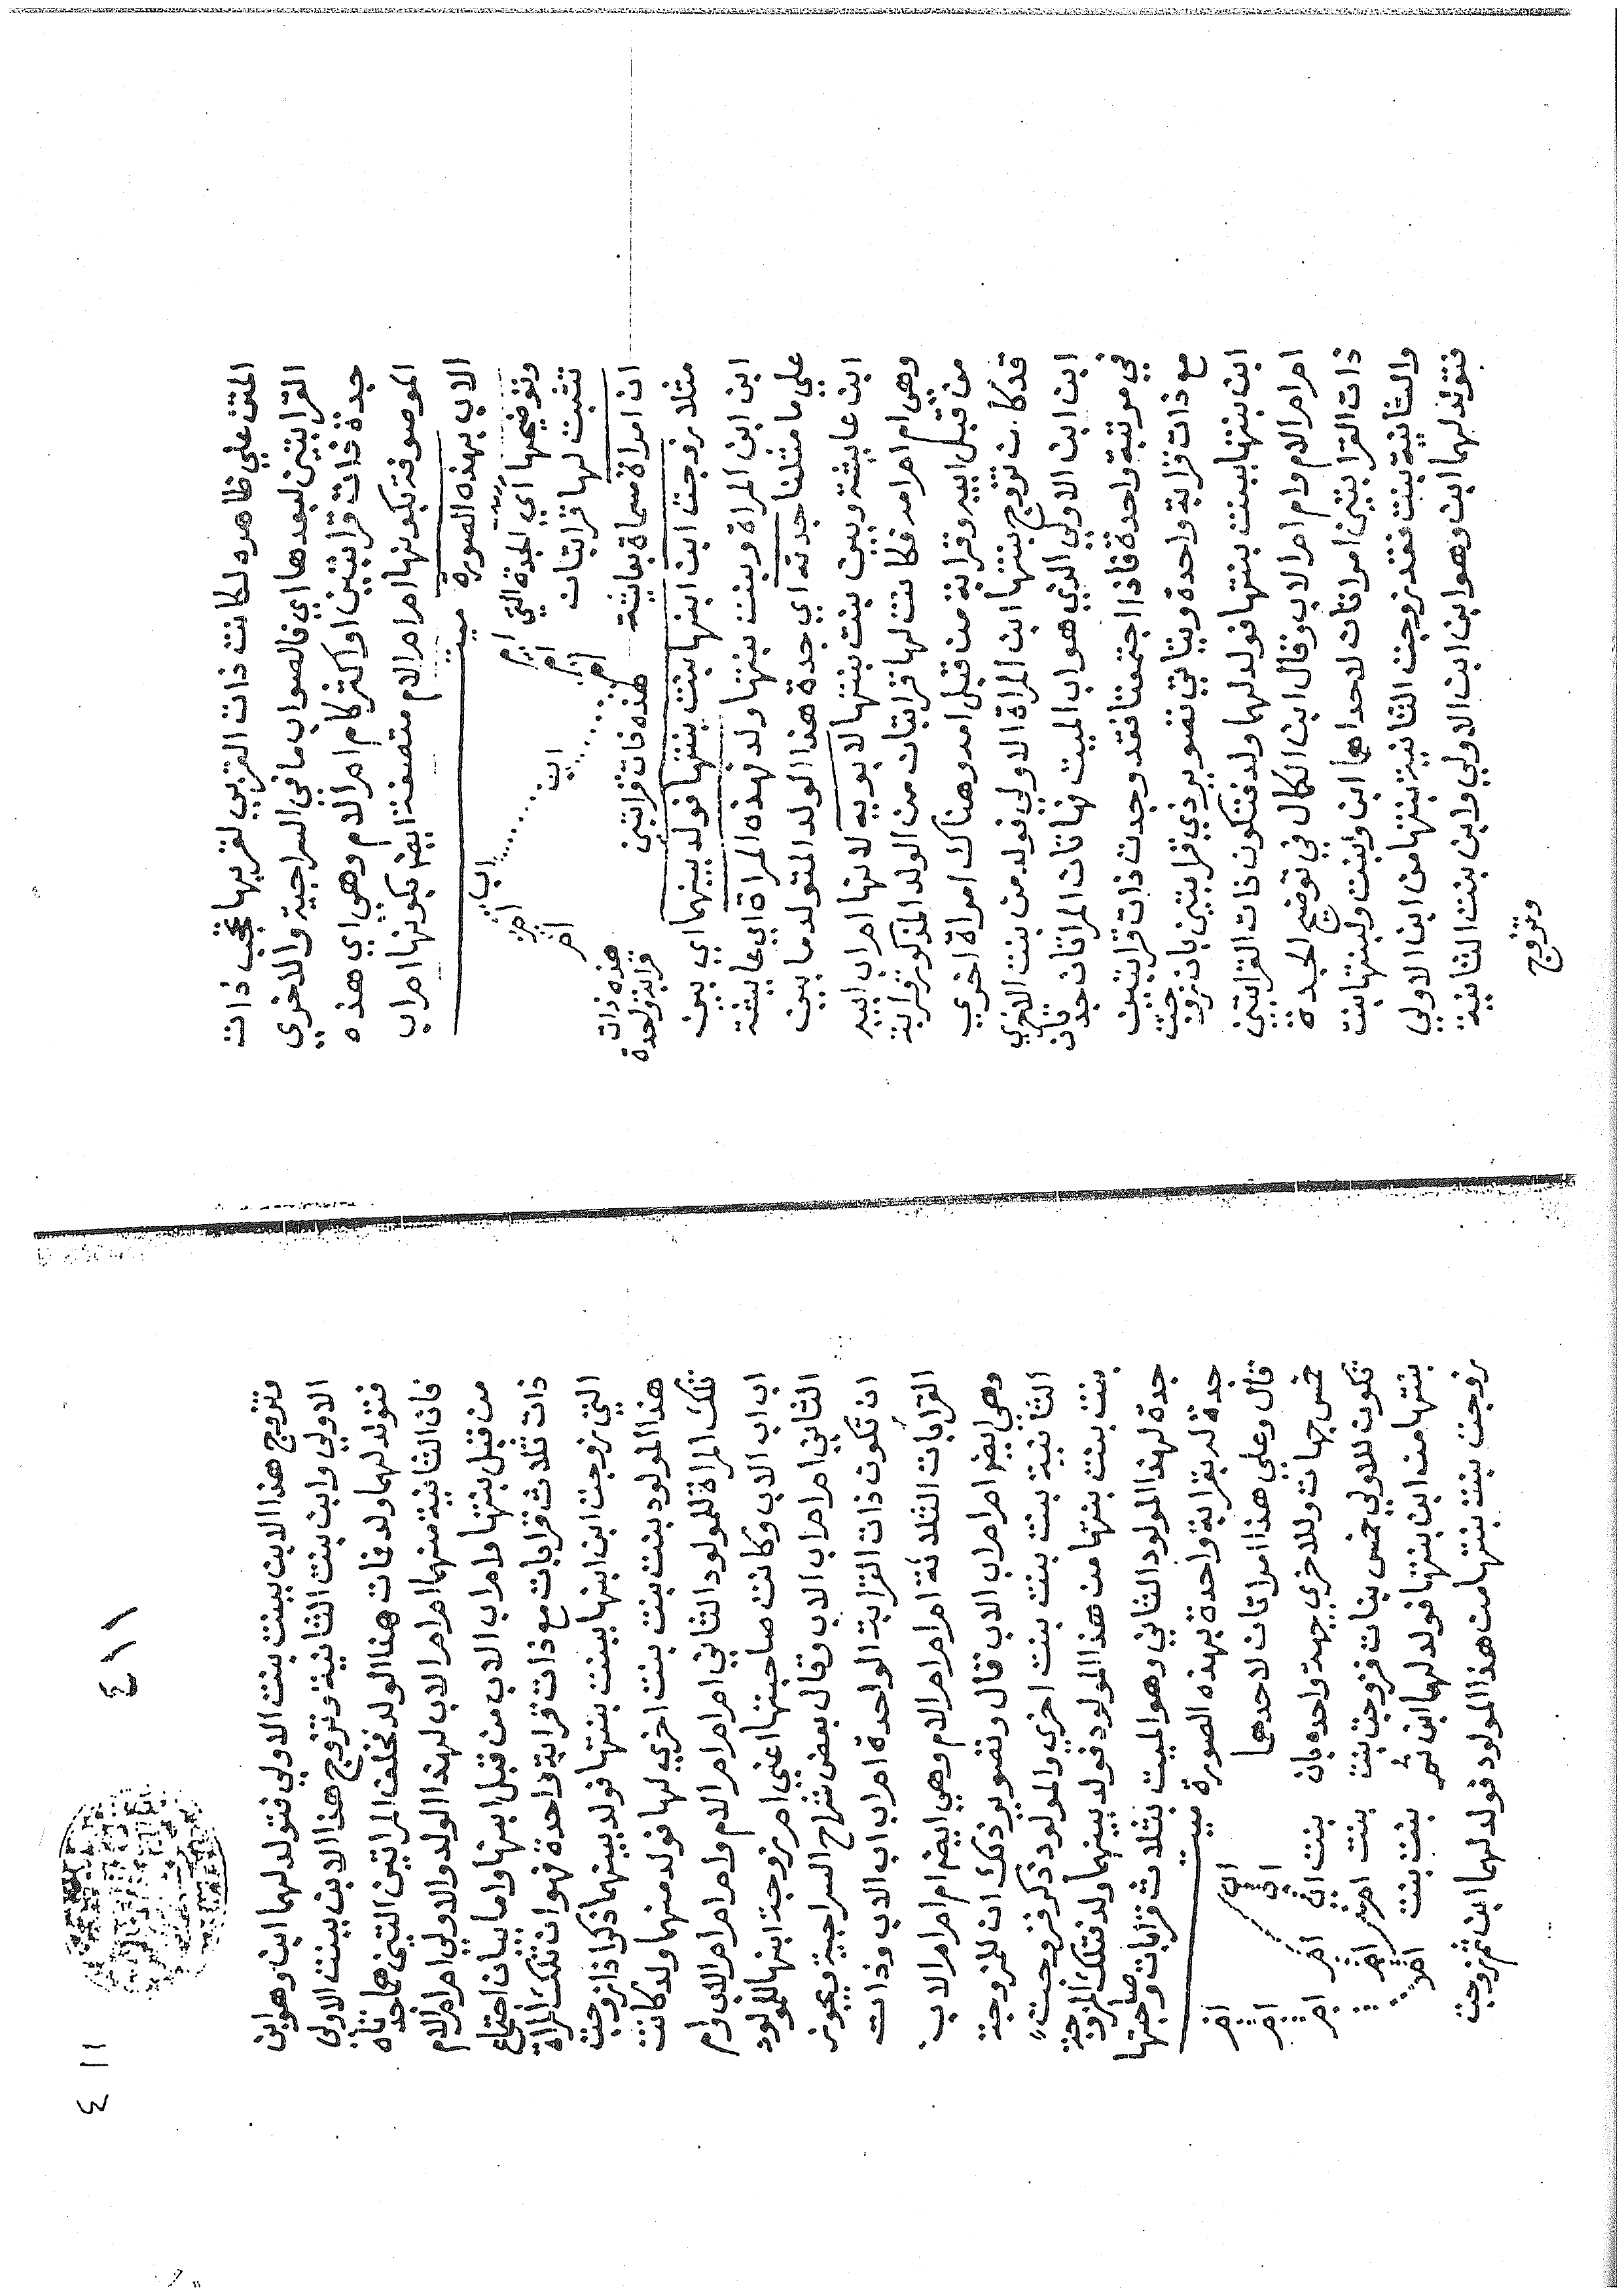 المتن علي ظاهره لكانت ذات القربي لقربها تحجب ذات
القرابتين لبعدها اي فالصواب ما في السراجية والاخري
جدة ذات قرابتين او اكثر كام ام الام وهي اي هذه
الموصوفة بكونها ام ام الام متصفة ايضا بكونها ام اب
الاب بهذه الصورة
ميت
وتوضيحها اي الجدة التي
تثبت لها قرابتان
ام
ام
ام
ابن
اب
ام
ام
هذه ذات قرابتين
هذه ذات
قرابة واحدة
ان امراة مسماة بعايشة
مثلا زوجت ابن ابنها بنت بنتها فولد بينهما اي بين
ابن ابن المراة وبنت بنتها ولد فهذه المراة اي عايشة
علي ما مثلنا جدته اي جدة هذا الولد المتولد ما بين
ابن ابن عايشة وبين بنت بنتها لابويه لانها ام اب ابيه
وهي ام ام امه فكانت لها قرابتان من الولد المذكور قرابة
من قبل ابيه وقرابة من قبل امه وهناك امراة اخري
قد كان تزوج بنتها ابن المراة الاولي فولد من بنت الاخري
ابن ابن الاولي الذي هو اب الميت فهاتان المراتان جدتان
في مرتبة واحدة فاذا اجتمعتا فقد وجدت ذات قرابتين
مع ذات قرابة واحدة ويتاتي تصوير ذي قرابتين بان زوجت
ابن بنتها ببنت بنتها فولد لهما ولد فتكون ذات القرابتين
ام ام الام وام ام الاب وقال ابن الكمال في توضيح الجدة
ذات القرابتين امراتان لاحداهما ابن وبنت ولبنتها بنت
والثانية بنت فقد زوجت الثانية بنتها من ابن الاولي
فتولد لهما ابن وهو ابن ابن الاولي وابن بنت الثانية
وتزوج
٤١١
٤١١
وتزوج هذا الابن ببنت بنت الاولي فتولد لهما ابن وهو ابن
الاولي وابن بنت الثانية وتزوج هذا الابن ببنت الاولي
فتولد لهما ولد فمات هنا الولد فخلف المراتين اللتين هما جدتاه
فان الثانية منهما ام ام الاب لهذا الولد والاولي ام ام الام
من قبل بنتها وام اب الاب من قبل ابنها واما بيان اجتماع
ذات ثلاث قرابات مع ذات قرابة واحدة فهو ان تلك المراة
التي زوجت ابن ابنها ببنت بنتها فولد بينهما ذكر اذا زوجت
هذا المولود بنت بنت بنت اخري لها فولد منهما ولد كانت
تلك المراة للمولود الثاني ام ام ام الام وام ام ام الاب وام
اب اب الاب وكانت صاحبتها اعني ام زوجة ابنها للمولود
الثاني ام ام اب الاب وقال بعض شراح السراجية ويجوز
ان تكون ذات القرابة الواحدة ام اب اب الاب وذات
القرابات الثلاثة ام ام ام الام وهي ايضا ام ام ام الاب
وهي ايضا ام ام اب الاب قال وتصوير ذلك ان للمزوجة
الثانية بنت بنت بنت اخري والمولود ذكر فزوجت
بنت بنت بنتها من هذا المولود فولد بينهما ولد فتلك المزوجة
جدة لهذا المولود الثاني وهو الميت بثلاث قرابات وصاحبتها
جدة له بقرابة واحدة بهذه الصورة
ميت
قال وعلي هذا امراتان لاحدهما
خمس جهات وللاخري جهة واحدة بان
تكون للاولي خمس بنات فزوجت بنت
بنتها من ابن بنتها فولد لهما ابن ثم
بنت بنت
زوجت بنت بنتها من هذا المولود فولد لهما ابن ثم زوجت